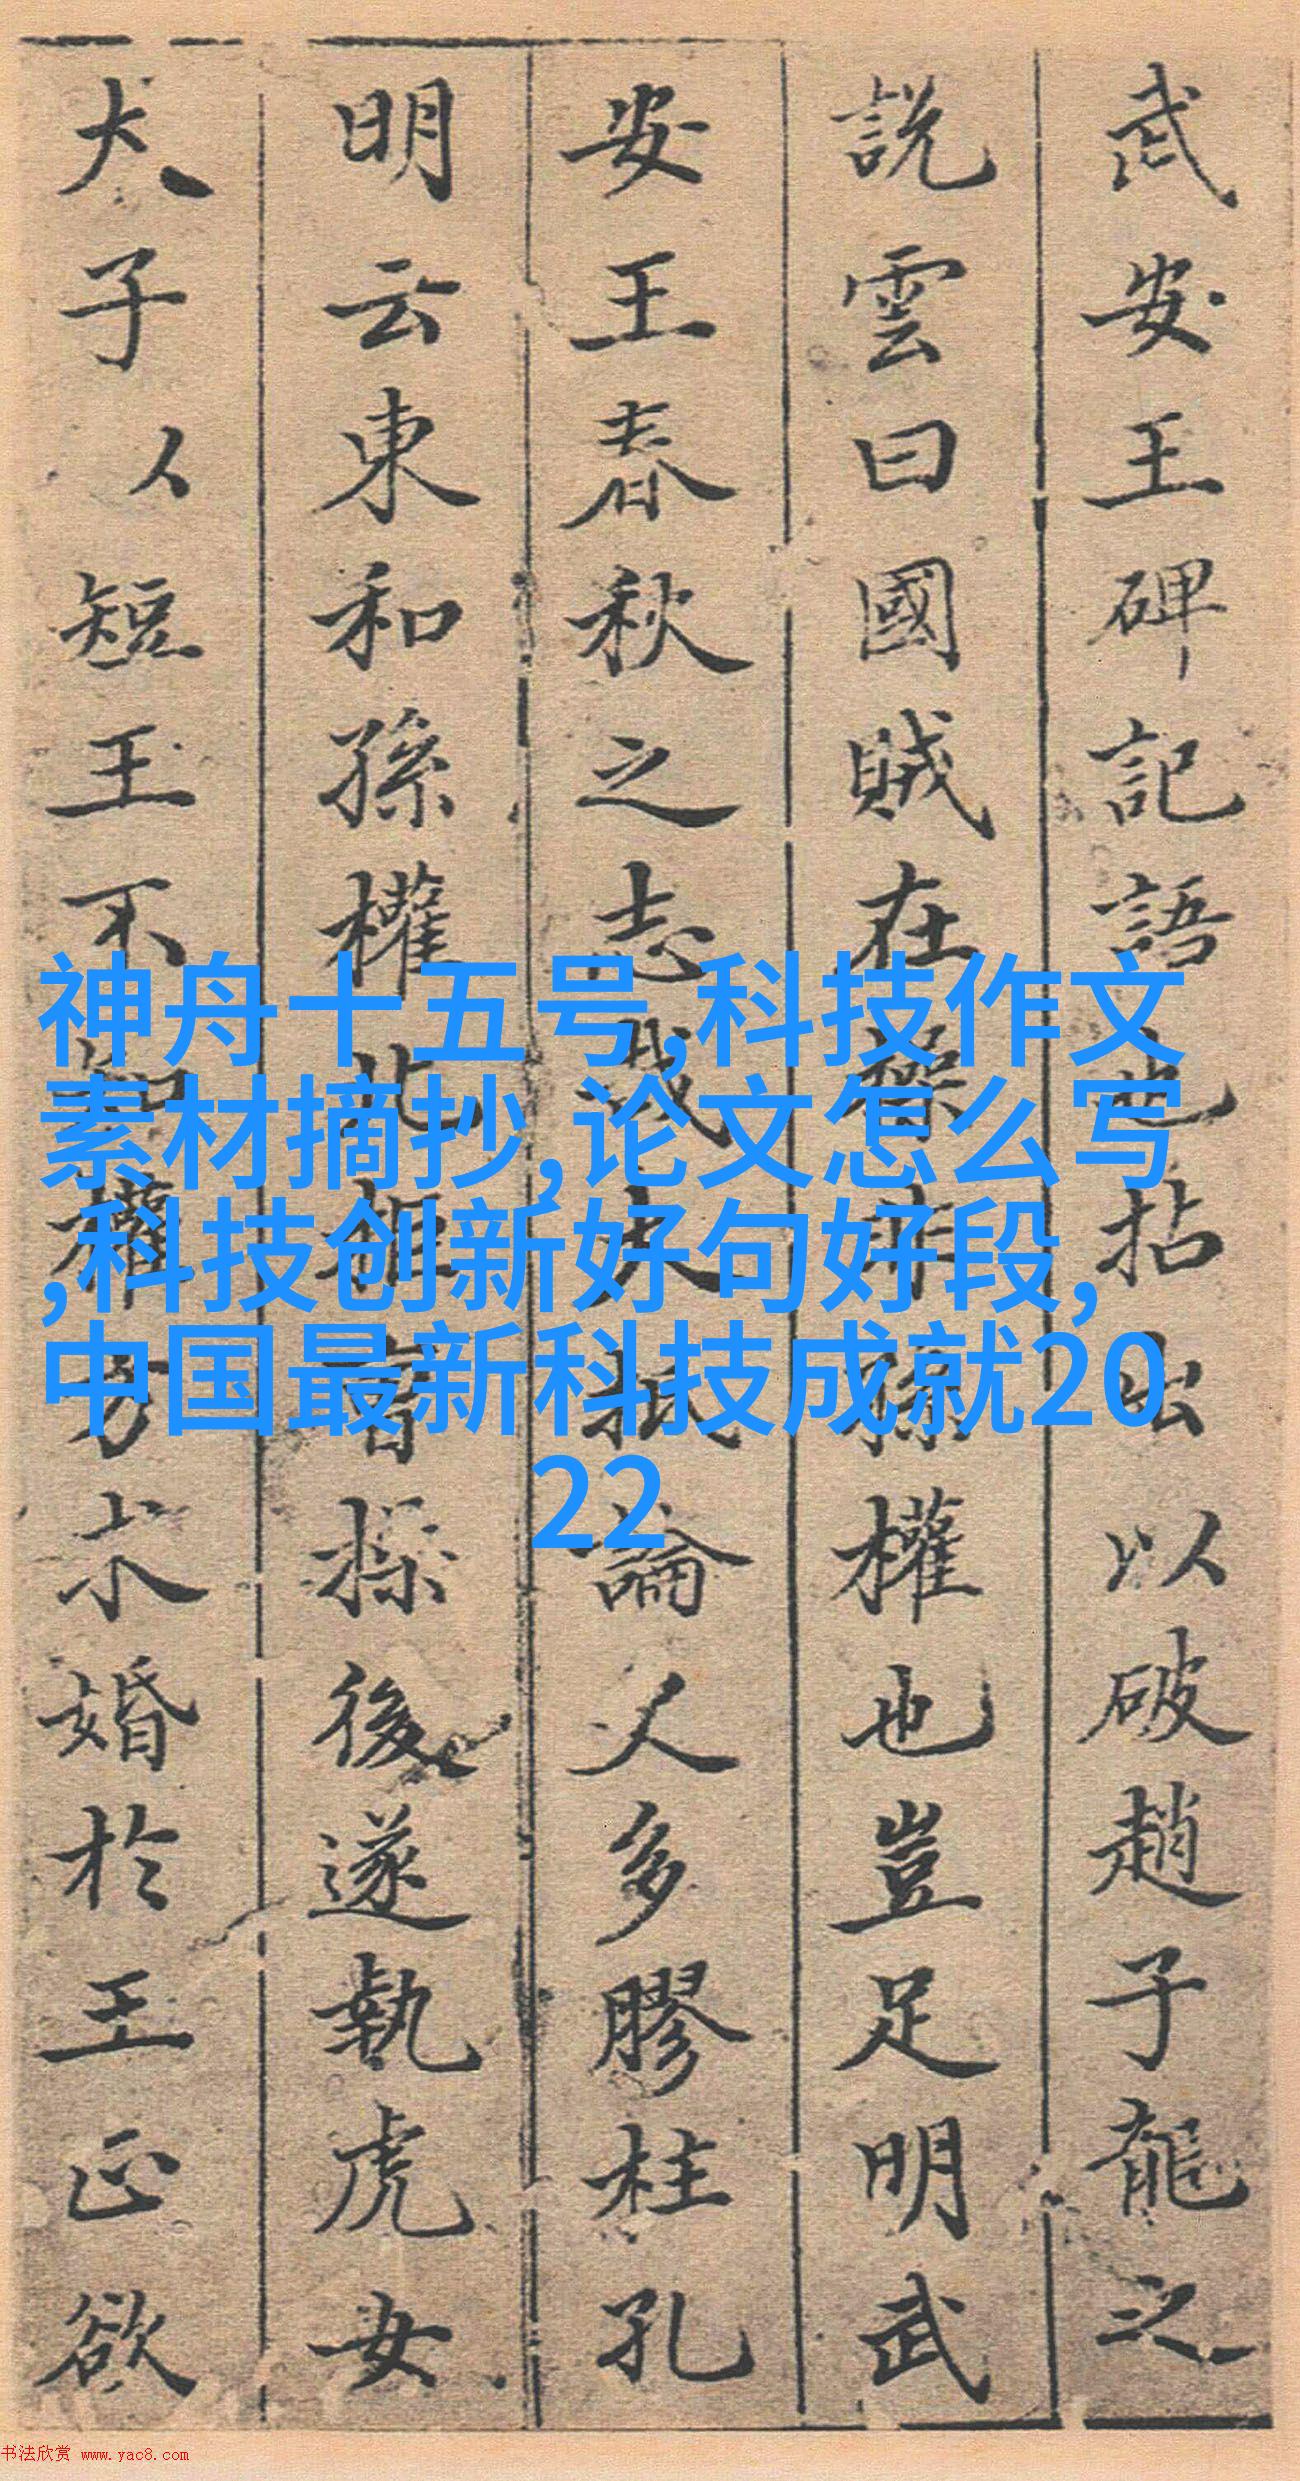 武安王碑記語也拈出以破趙子龍之
說雲曰國賊在操非孫權也豈足明武
安王春秋之志哉大抵論人多膠柱孔
明云東和孫權北拒曹操後遂執虎女
犬子以短王不知權方求婚於王正欲
神舟十五号,科技作文
素材摘抄,论文怎么写
,科技创新好句好段,
中国最新科技成就20
22
书法欣赏 www.yac8.com